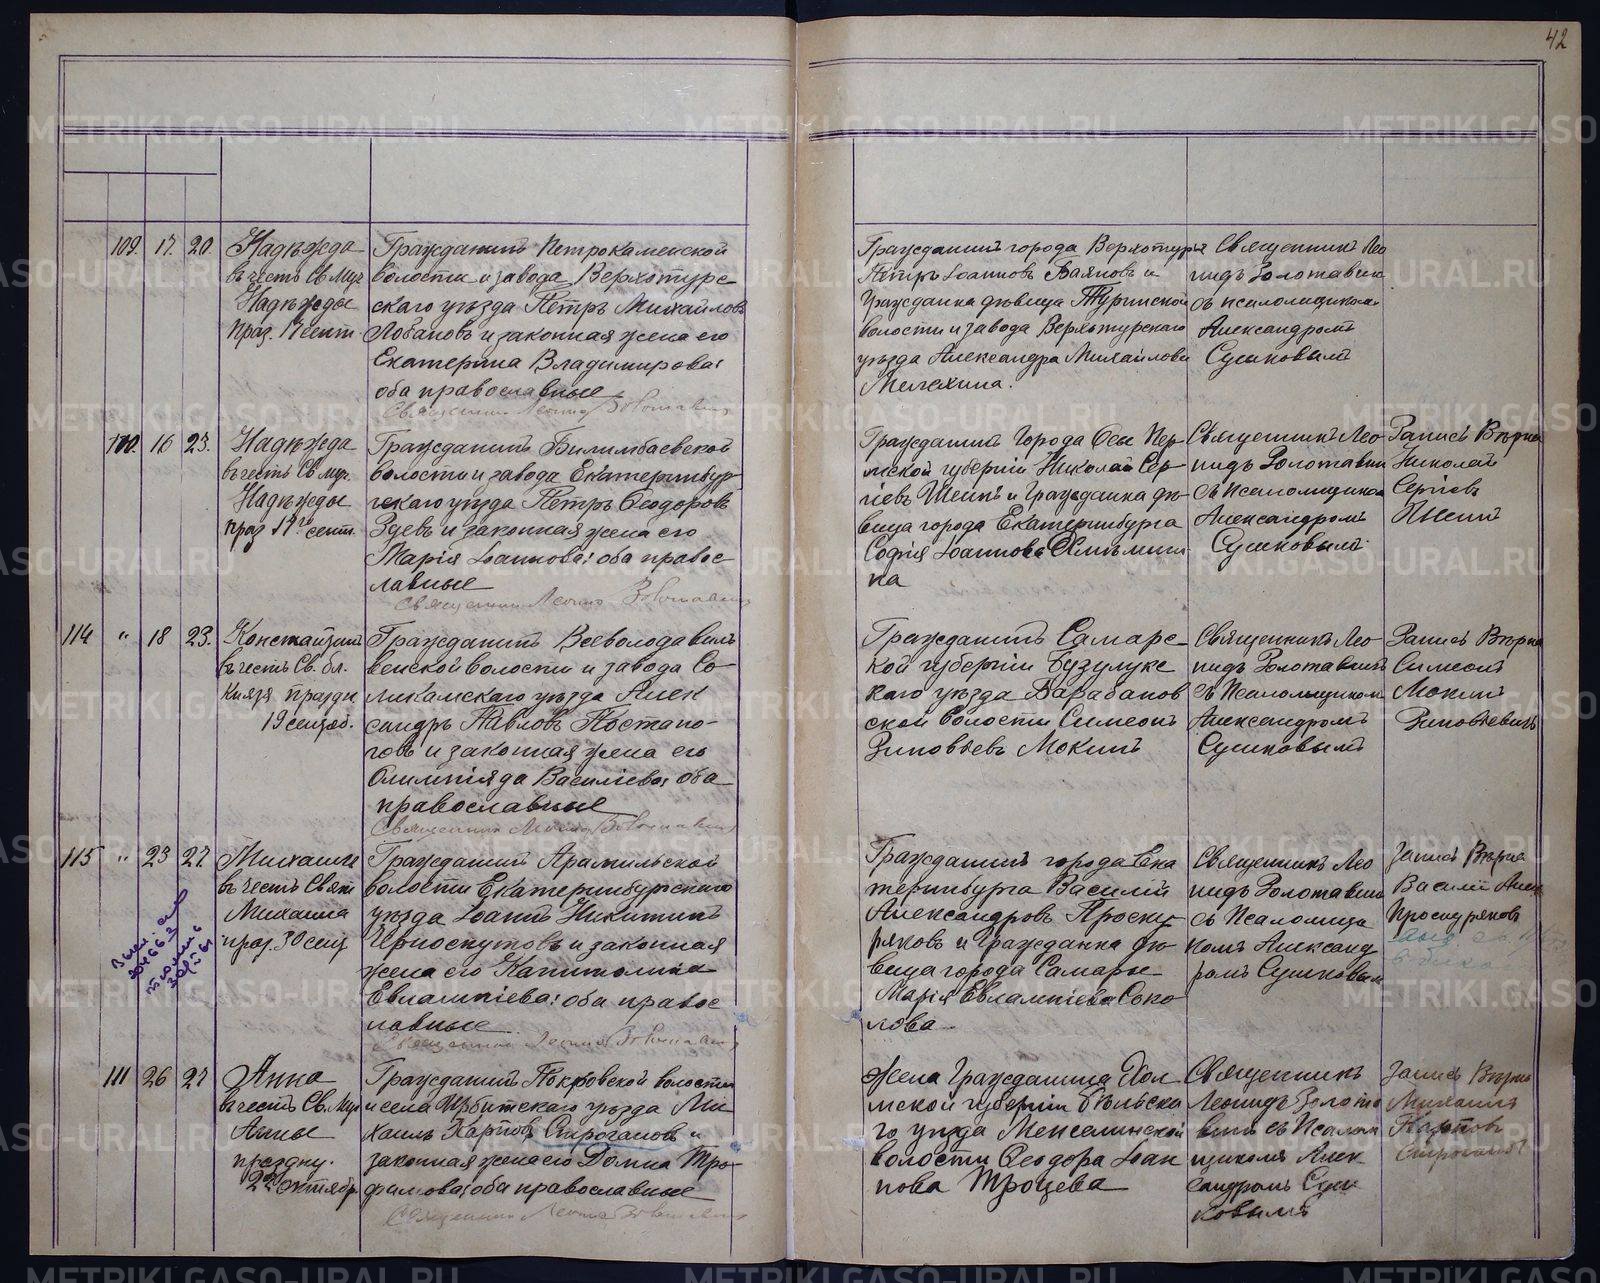 42
109. 17. 20. Надѣжда
въ честь Св. Муч.
Надѣжды
праз. 17 сент.
Гражданинъ Петрокаменской
волости и завода Верхотурс
скаго уѣзда Петръ Михайловъ
Лобановъ и законная жена его
Екатерина Владимирова:
оба православные
Священникъ Леонидъ Золотавинъ
Гражданинъ города Верхотурья
Петръ Іоанновъ Баяновъ и
гражданка дѣвица Туринской
волости и завода Верхотурскаго
уѣзда Александра Михайлова
Мелехина.
Священникъ Лео
нидъ Золотавин
съ псаломщиком
Александромъ
Сушковымъ
110. 16 23. Надѣжда
въ честь Св. муч.
Надѣжды
праз 17го сент.
Гражданинъ Билимбаевской
волости и завода Екатеринбур
гскаго уѣзда Петръ Ѳеодоровъ
Зуевъ и законная жена его
Марія Іоаннова: оба правос
лавные
Священникъ Леонидъ Золотавинъ
Гражданинъ Города Осы Пер
мской губерніи Николай Сер
гіевъ и Гражданка дѣ
вица города Екатеринбурга
Софія Іоаннова
на
Священникъ Лео
нидъ Золотавин
съ Псаломщиком
Александромъ
Сушковымъ
Запись Вѣрна
Николай
Сергіевъ
114 " 18 23. Константинъ
въ честь Св. бл.
Князя праздн.
19 сентяб.
Гражданинъ Всеволодавиль
венской волости и завода Со
ликамскаго уѣзда Алек
сандръ Павловъ Постано
говъ и законная жена его
Олимпіада Василіева: оба
православные
Священникъ Леонидъ Золотавинъ
Гражданинъ Самарс
кой губерніи Бузулукс
каго уѣзда Барабанов
ской волости Симеонъ
Зиновьевъ Мокинъ
Священникъ Лео
нидъ Золотавинъ
съ Псаломщиком
Александромъ
Сушковымъ
Запись Вѣрна
Симеонъ
Мокинъ
Зиновьевичъ
115 " 23 27. Михаилъ
въ честь Свят
Михаила
праз. 30 сент
Гражданинъ Арамильской
волости Екатеринбургскаго
уѣзда Іоаннъ Никитинъ
Черноскутовъ и законная
жена его Капитолина
Евлампіева: оба правос
лавные
Священникъ Леонидъ Золотавинъ
Гражданинъ города Ека
теринбурга Василій
Александровъ Проску
ряковъ и Гражданка дѣ
вица города Самары
Марія Евлампіева Соко
лова
Священникъ Лео
нидъ Золотавин
съ Псаломщи
комъ Александ
ромъ Сушковым
Запись Вѣрна
Василій Алек
Проскуряковъ
111 26 27 Анна
въ честь Св. Муч
Анны
праздну.
22 октябр.
Гражданинъ Покровской волости
и села Ирбитскаго уѣзда Ми
хаилъ Карповъ Строгановъ и
законная жена его Домна Тро
фимова: оба православные
Священникъ Леонидъ Золотавинъ
Жена Гражданина Хол
мской губерніи Бѣльска
го уѣзда
волости Ѳеодора Іоан
нова Троцева
Священникъ
Леонидъ Золота
винъ съ Псалом
щикомъ Алек
сандромъ Суш
ковымъ
Запись Вѣрна
Михаилъ
Карповъ
Строгановъ